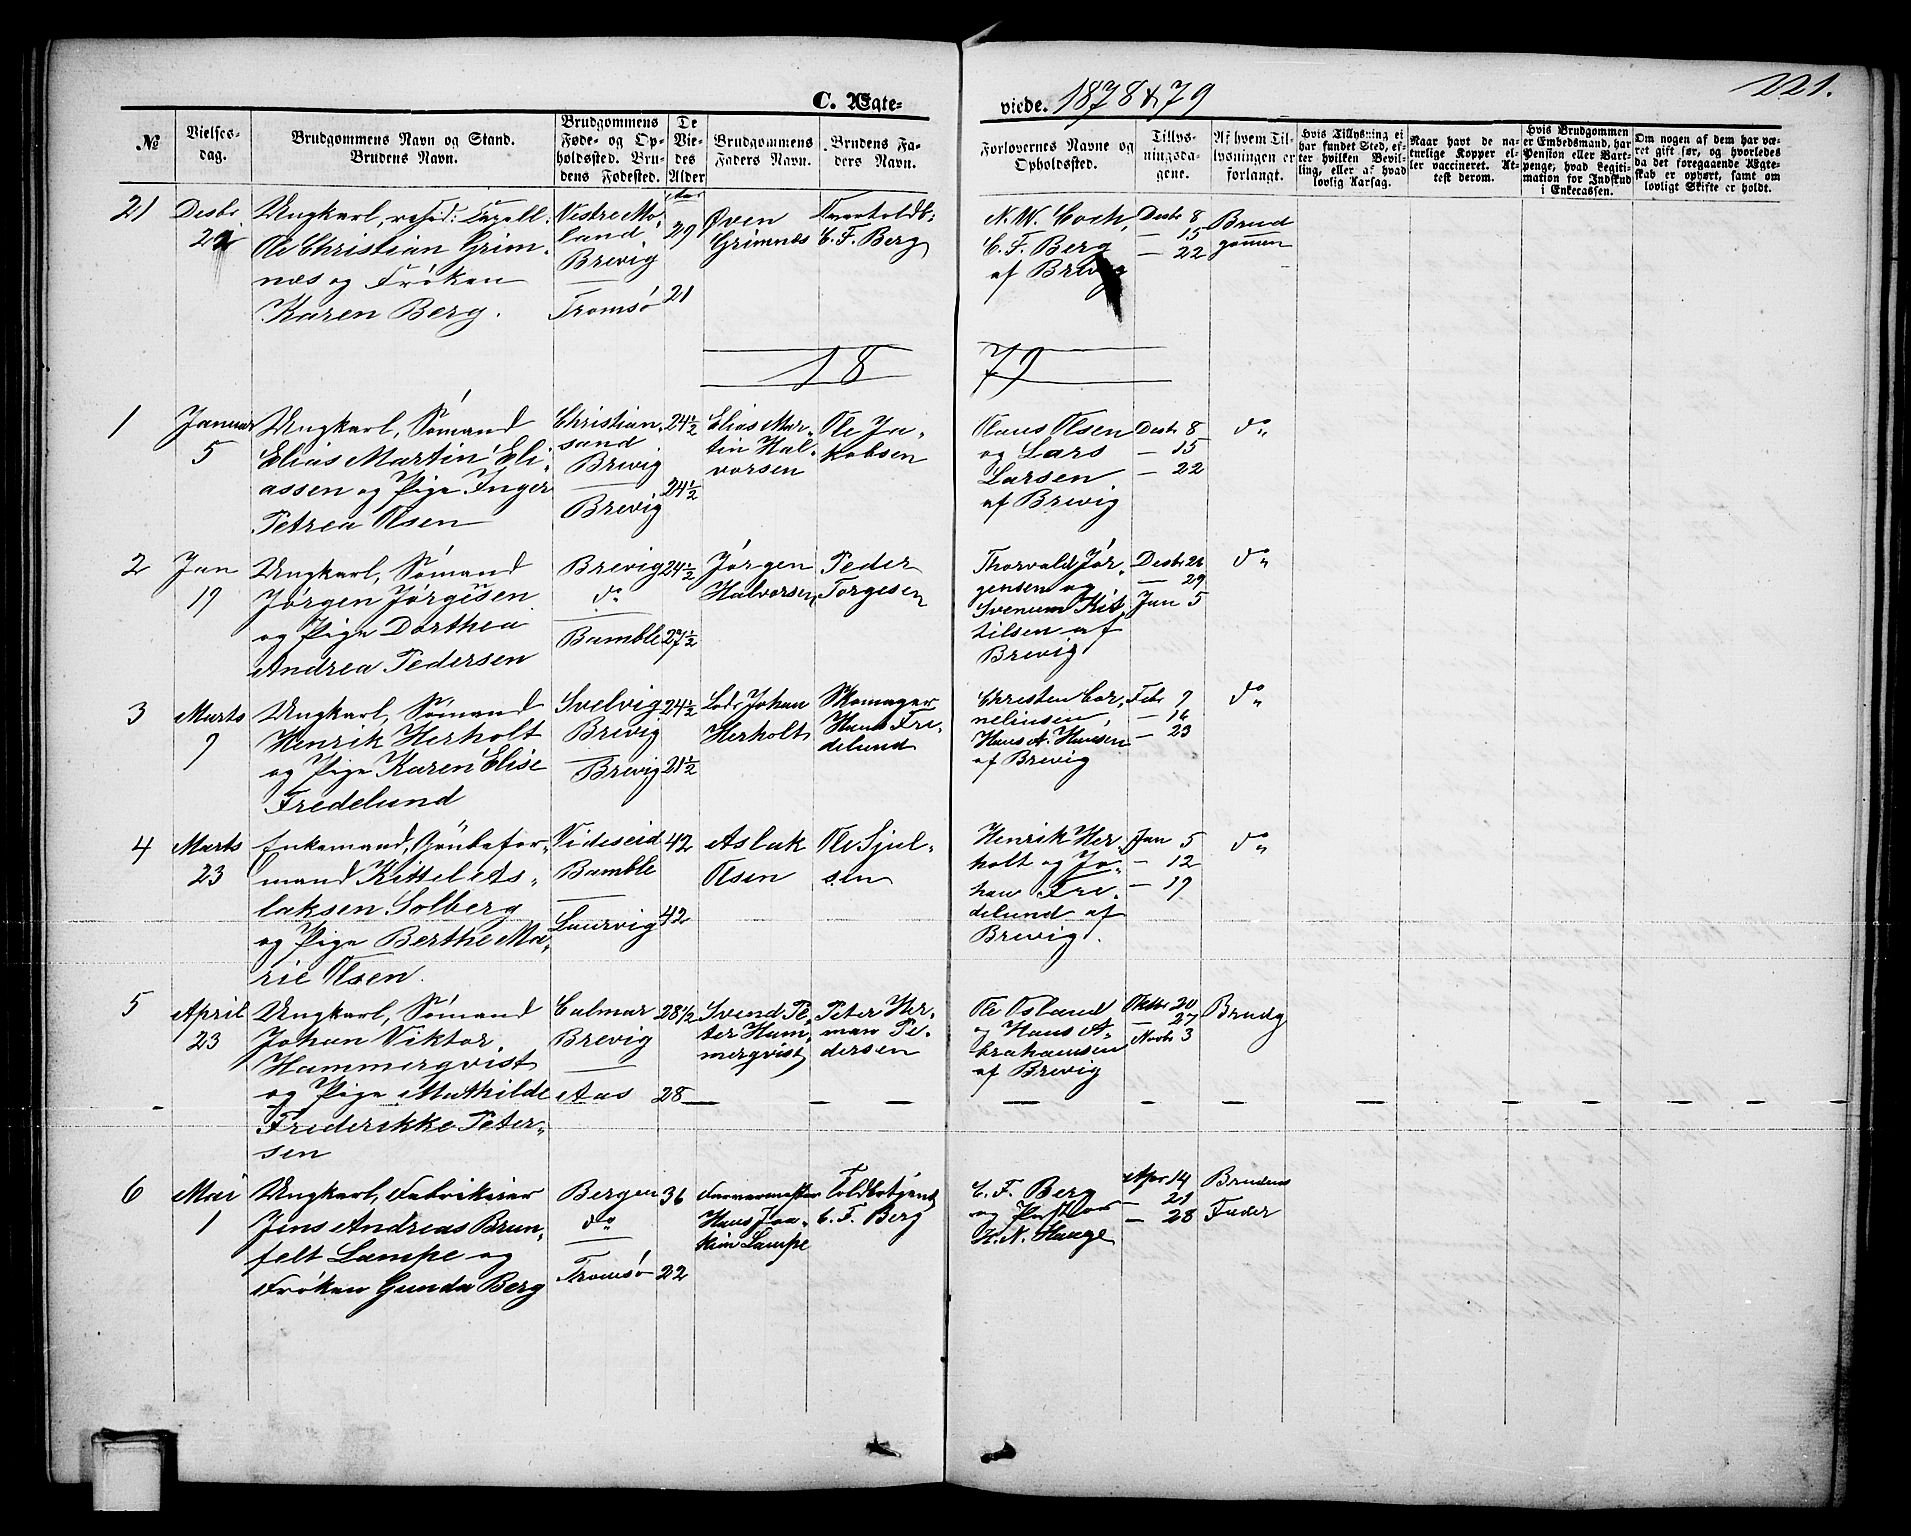 221.
C. Ægte-
viede. 1878 & 79
№
Vielses-
dag.
Brudgommens Navn og Stand.
Brudens Navn.
Brudgommens
Føde- og Op-
holdssted. Bru-
dens Fødested.
De
Vie-
des
Alder
Brudgommens
Faders Navn.
Brudens Fa-
ders Navn.
Forlovernes Navne og
Opholdssted.
Tillys-
ningsda-
gene.
Af hvem Til-
lysningen er
forlangt.
Hvis Tillysning ei
har fundet Sted, ef-
ter hvilken Bevil-
ling, eller af hvad
lovlig Aarsag.
Naar havt de na-
turlige Kopper el-
ler vaccineret. At-
test derom.
Hvis Brudgommen
er Embedsmand, har
Pension eller Vart-
penge, hvad Legiti-
mation for Indskud
i Enkecassen.
Om nogen af dem har væ-
ret gift før, og hvorledes
da det foregaaende Ægte-
skab er ophørt, samt om
lovligt Skifte er holdt.
21
Desbr
22
Ungkarl,
Ole Christian Grim-
næs og Frøken
Karen Berg.
Vestre Mo-
land,
Brevig
Tromsø
Aar
29
21
Øven
Grimnæs
C. F. Berg
N. W. Coch,
C. F. Berg
af Brevig
Desbr 8
— 15
— 22
Brud
gommen
18
79
1
Januar
5
Ungkarl, Sømand
Elias Martin Eli-
assen og Pige Inger
Petrea Olsen
Christian-
sand
Brevig
Brevig
24½
24½
Elias Mar-
tin Hal-
vorsen
Ole Ja-
kobsen
Claus Olsen
og Lars
Larsen
af Brevig
Desbr 8
— 15
— 22
do
2
Jan
19
Ungkarl, Sømand
Jørgen Jørgisen
og Pige Dorthea
Andrea Pedersen
Brevig
do
Bamble
24½
27½
Jørgen
Halvorsen
Peder
Torgesen
Thorvald Jør-
gensen og
Svenum Kit-
tilsen af
Brevig
Desbr 26
— 29
Jan 5
do
3
Marts
9
Ungkarl, Sømand
Henrik Herholt
og Pige Karen Elise
Fredelund
Svelvig
Brevig
Brevig
24½
21½
Lods Johan
Herholt
Skomager
Hans Fre-
delund
Christen Cor-
neliusen,
Hans A. Hansen
af Brevig
Febr 9
— 16
— 23
do
4
Marts
23
Enkemand, Grubefor-
mand Kittel As-
laksen Solberg
og Pige Berthe Ma-
rie Olsen.
Videseid
Bamble
Laurvig
42
42
Aslak
Olsen
Ole Sjul-
sen
Henrik Her-
holt og Jo-
han Fre-
delund af
Brevig.
Jan 5
— 12
— 19
do
5
April
23
Ungkarl, Sømand
Johan Viktor
Hammerqvist
og Pige Mathilde
Frederikke Peter-
sen
Calmar
Brevig
Aas
28½
28
Svend Pe-
ter Ham-
merqvist
Peter Her-
man Pe-
dersen
Ole Osland
og Hans A-
brahamsen
af Brevig
Oktbr 20
— 27
Novbr 3
Brudg
6
Mai
1
Ungkarl, Fabrikeier
Jens Andreas Brun-
felt Lampe og
Frøken Gunda Berg
Bergen
do
Tromsø
36
22
Farvermester
Hans Joa-
kim Lampe
Toldbetjent
C. F. Berg
C. F. Berg
og Pastor
H. N. Hauge
Apr 14
— 21
— 28
Brudens
Fader